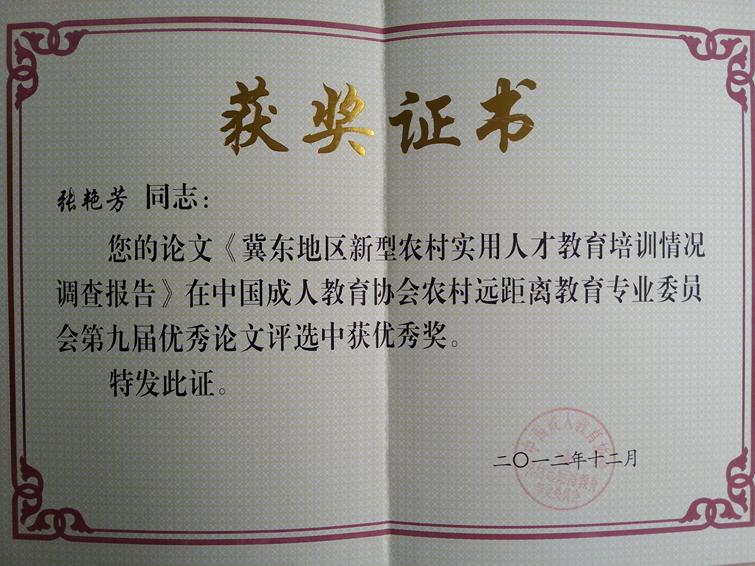 获奖证书
张艳芳 同志：
您的论文《冀东地区新型农村实用人才教育培训情况
调查报告》在中国成人教育协会农村远距离教育专业委员
会第九届优秀论文评选中获优秀奖。
特发此证。
二〇一二年十二月
中国成人教育协